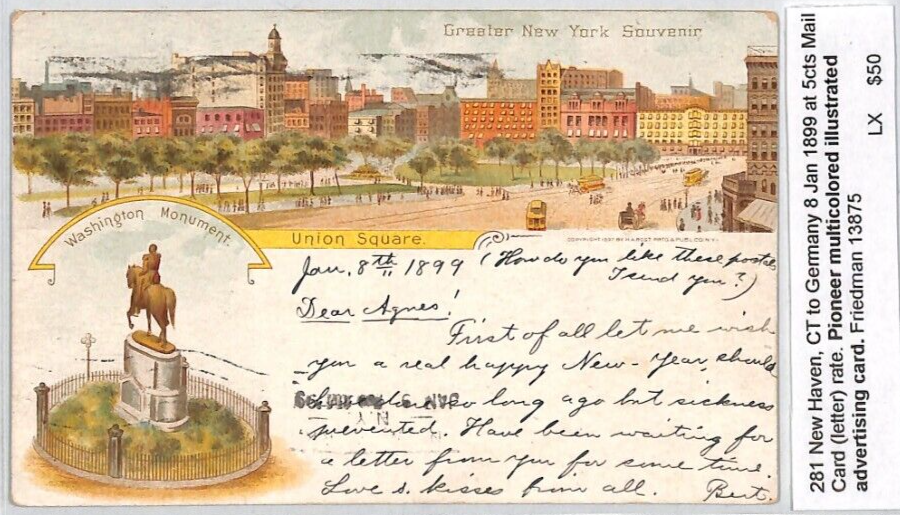 Greater New York Souvenir
Washington Monument.
Union Square.
COPYRIGHT 1897 BY H.A.ROST PRTG & PUBL.CO.N.Y.
Jan. 8th 1899 (How do you like these postals
I send you?)
Dear Agnes!
First of all let me wish
you a real happy New-Year, should
so long ago but sickness
prevented. Have been waiting for
a letter from you for some time.
Love & kisses from all. Bert.
281 New Haven, CT to Germany 8 Jan 1899 at 5cts Mail
Card (letter) rate. Pioneer multicolored illustrated
advertising card. Friedman 13875
LX $50